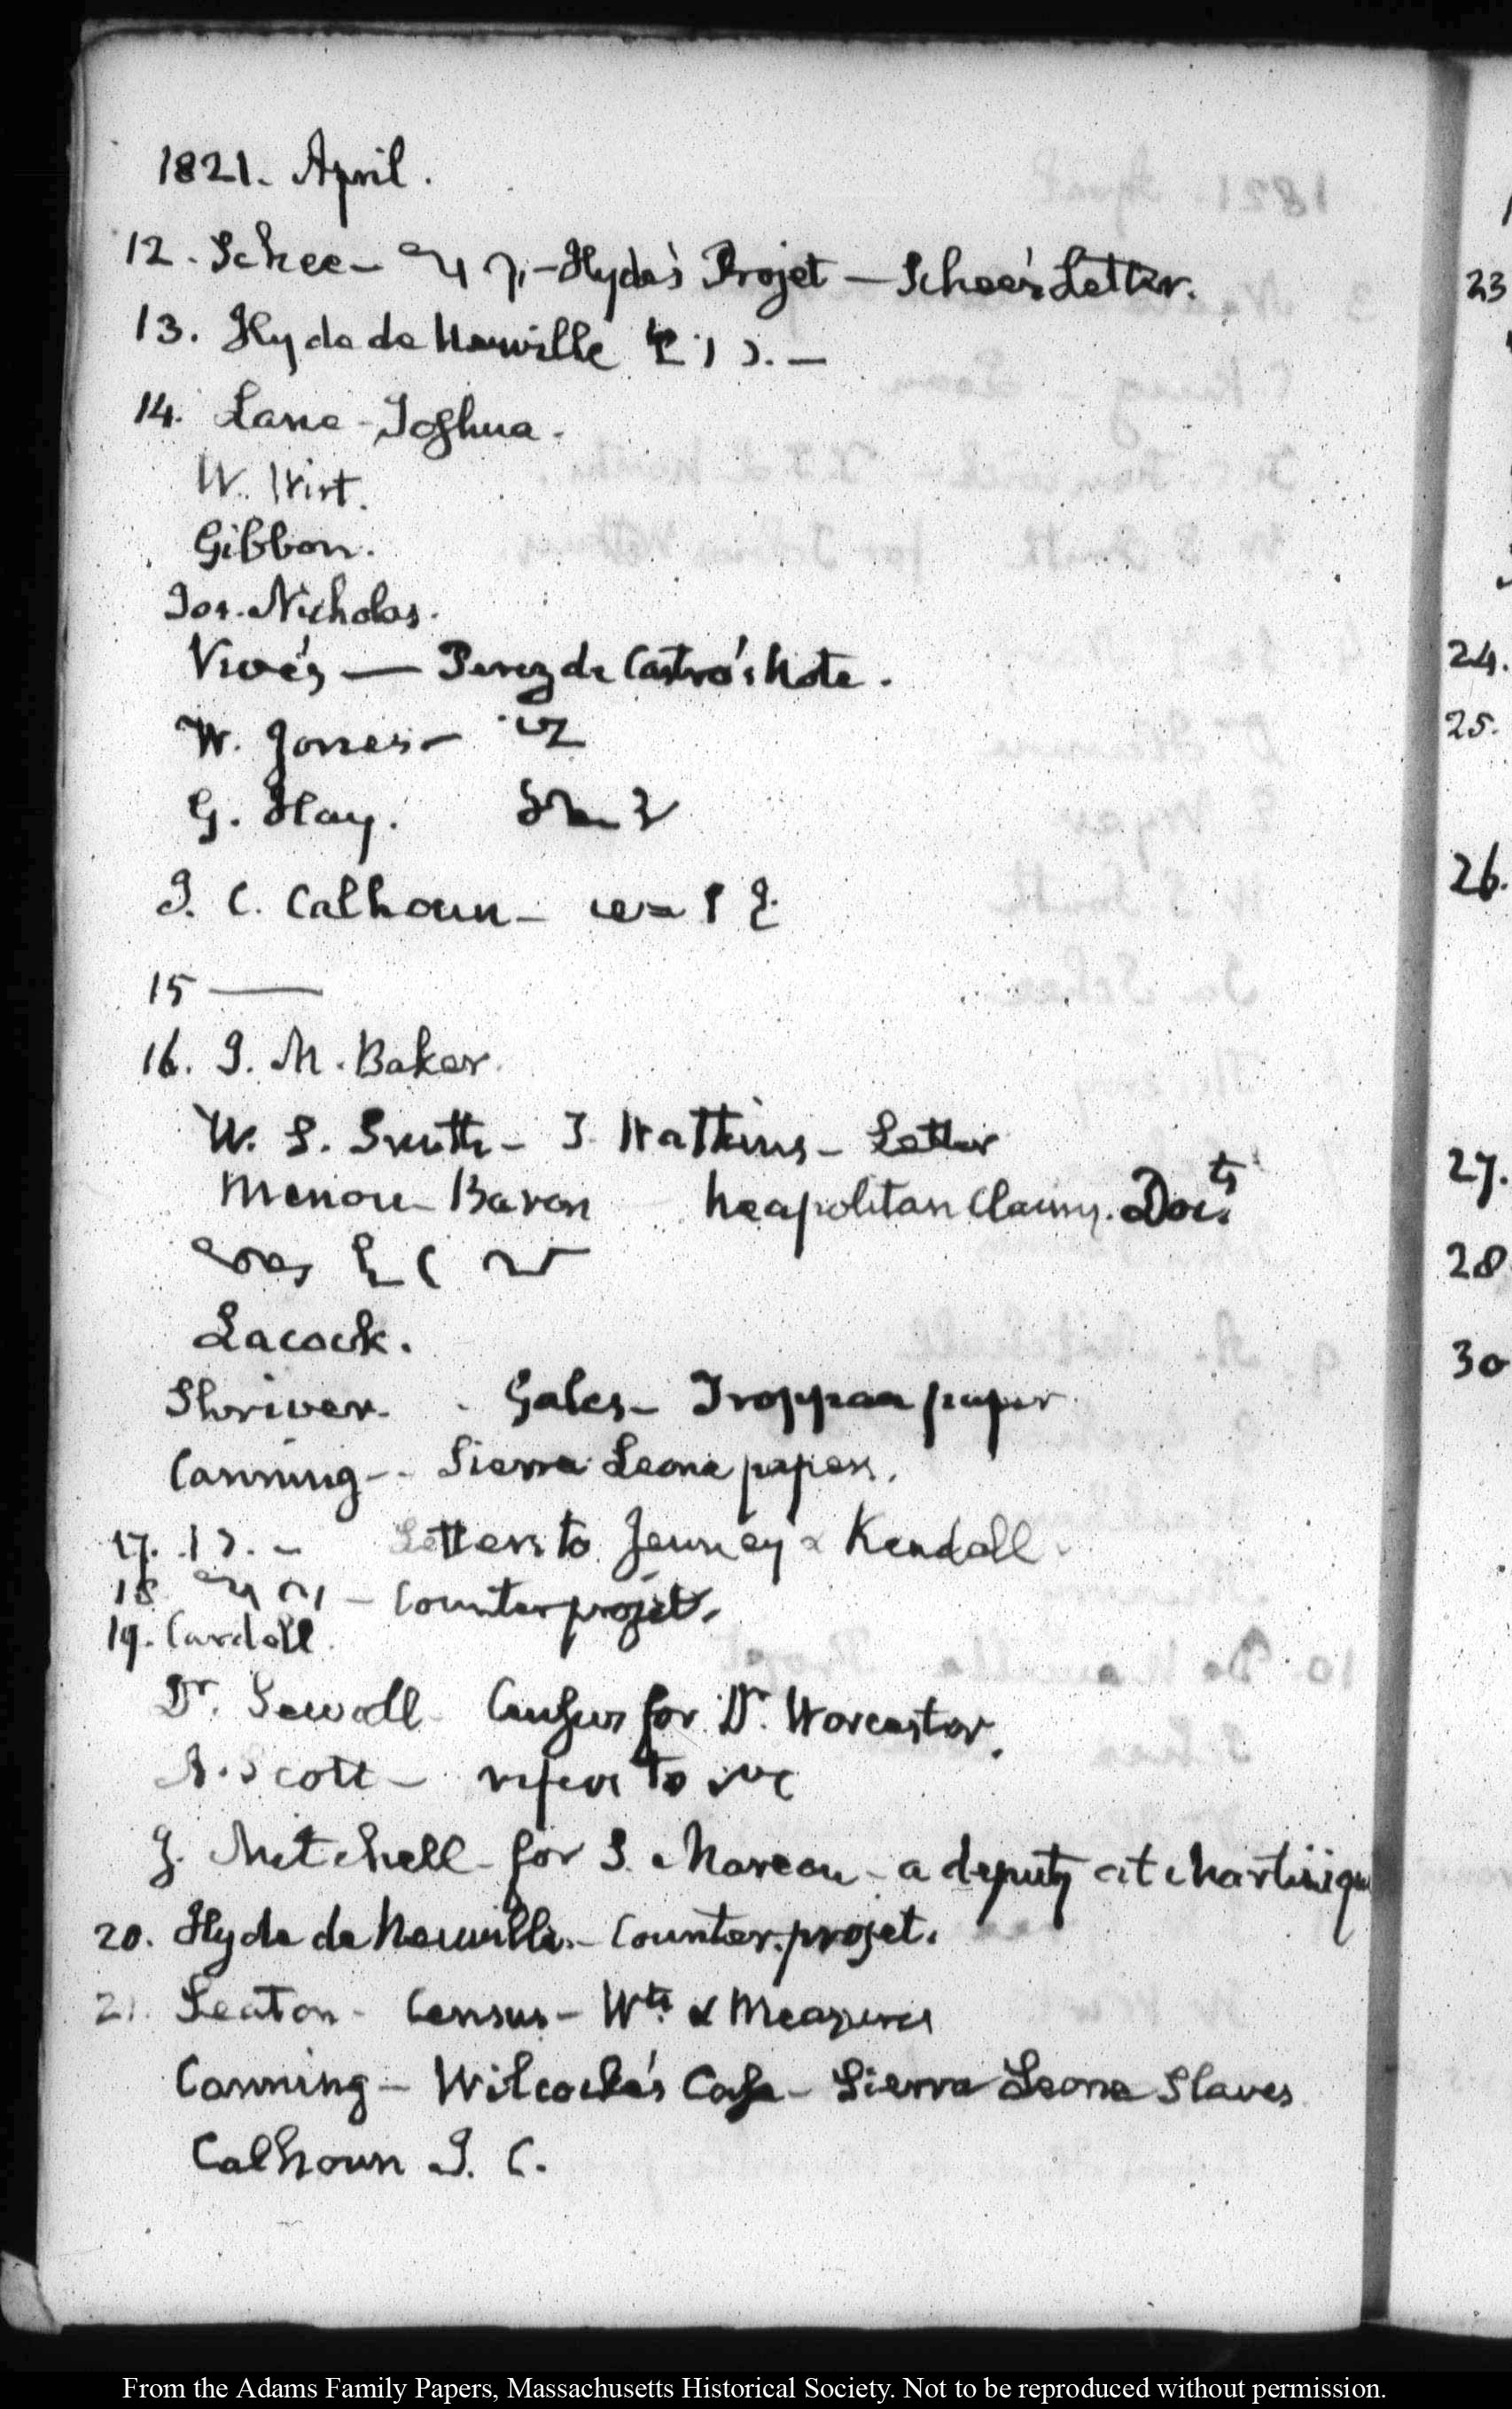 1821. April.
12. Schee - Hyde's Projet - Schee's Letter.
13. Hyde de Neuville
14. Lane - Joshua.
W. Wirt.
Gibbon.
Jos. Nicholas.
Vivés - Perez de Castro's Note.
W. Jones -
G. Hay.
J. C. Calhoun -
15 -
16. J. M. Baker.
W. S. Smith - T. Watkins - Letter
Menou - Baron Neapolitan Claims. Docts
Lacock.
Shriver. Gales - Troppau paper
Canning - Sierra Leone papers.
17. Letters to Jenney & Kendall.
18 - Counter projet.
19. Cardell.
Dr. Sewall Census for Dr. Worcester.
A. Scott - refers to
J. Mitchell - for S. Moreau - a deputy at Martinique
20. Hyde de Neuville - Counter-projet.
21. Seaton - Census - Wts. & Measures
Canning - Wilcocks's Case - Sierra Leone Slaves
Calhoun J. C.
23
24.
25.
26.
27.
28
30
From the Adams Family Papers, Massachusetts Historical Society. Not to be reproduced without permission.